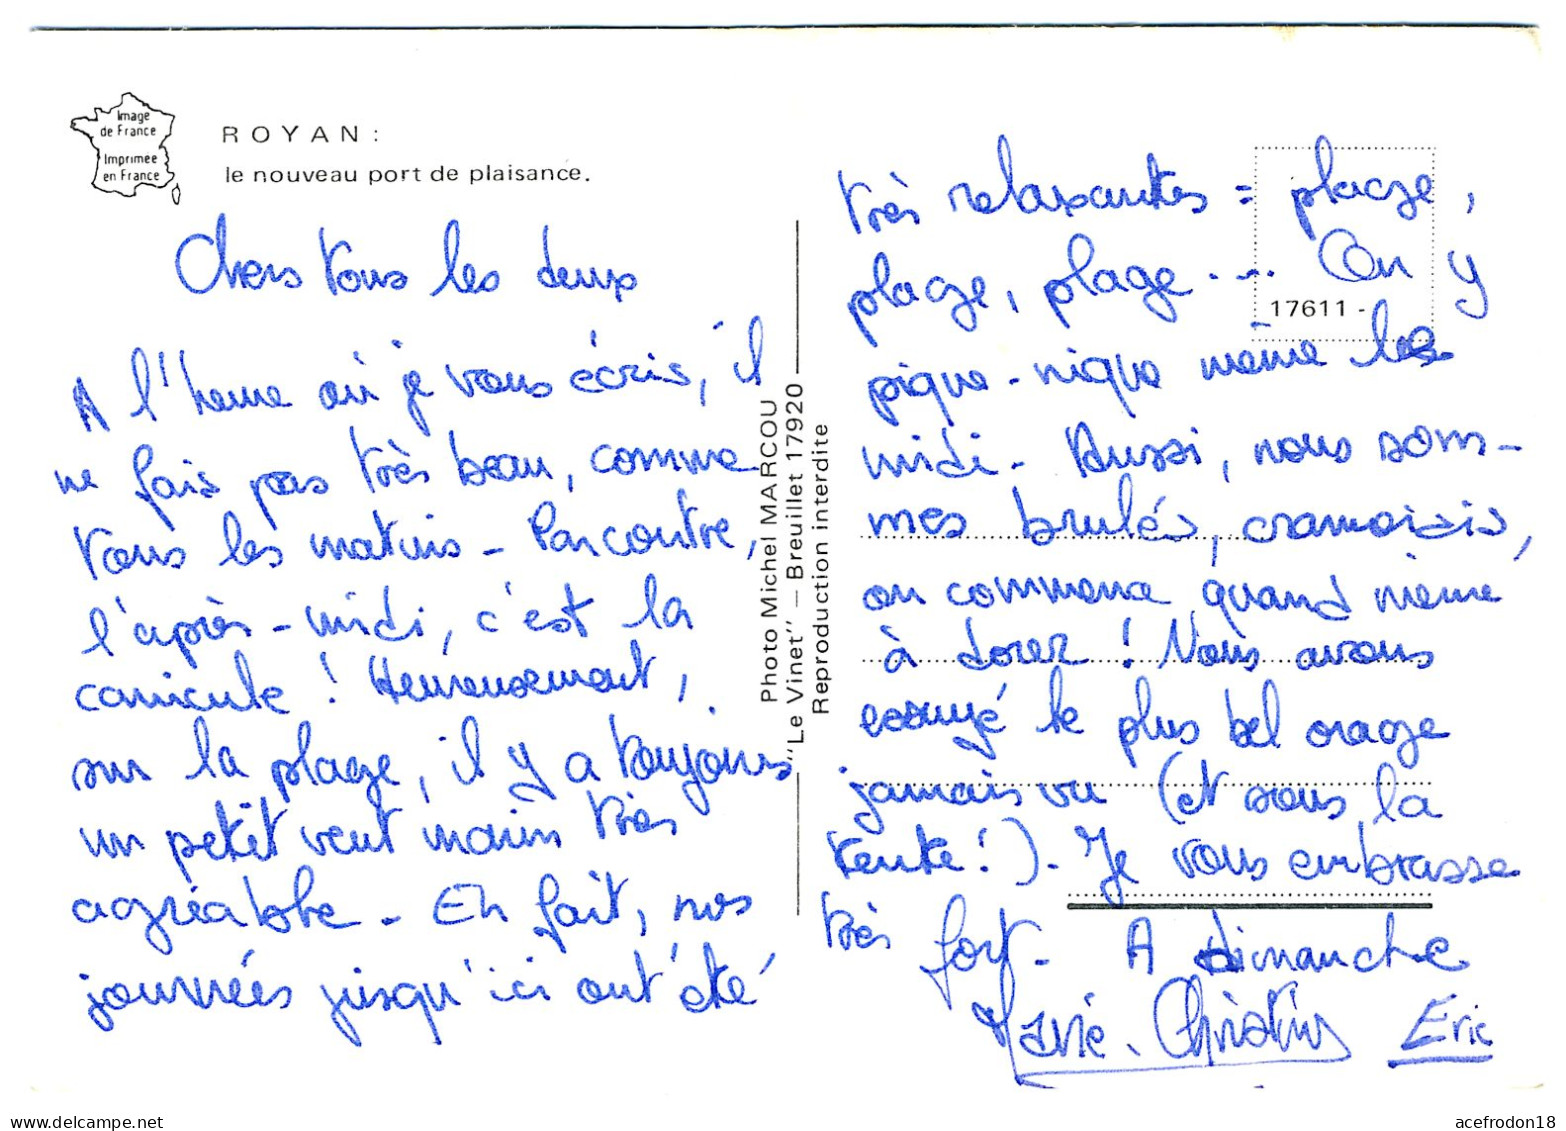 Image
de France
Imprimée
en France
ROYAN :
le nouveau port de plaisance.
Chers tous les deux
A l'heure où je vous écris, il
ne fais pas très beau, comme
tous les matins - Par contre,
l'après-midi, c'est la
canicule ! Heureusement,
sur la plage, il y a toujours
un petit vent marin très
agréable - En fait, nos
journées jusqu'ici ont été
Photo Michel MARCOU
"Le Vinet" — Breuillet 17920
Reproduction interdite
17611 -
très relaxantes = plage,
plage, plage .... On y
pique-nique même les
midi - Aussi, nous som-
mes brulés, cramoisis,
on commence quand même
à dorer ! Nous avons
essuyé le plus bel orage
jamais vu (et sous la
tente !) - Je vous embrasse
très fort - A dimanche
Marie-Christine Eric
www.delcampe.net
acefrodon18